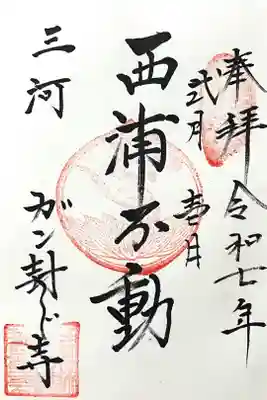 奉拝 令和七年
弐月 壱日
西浦不動
三河
ガン封じ寺